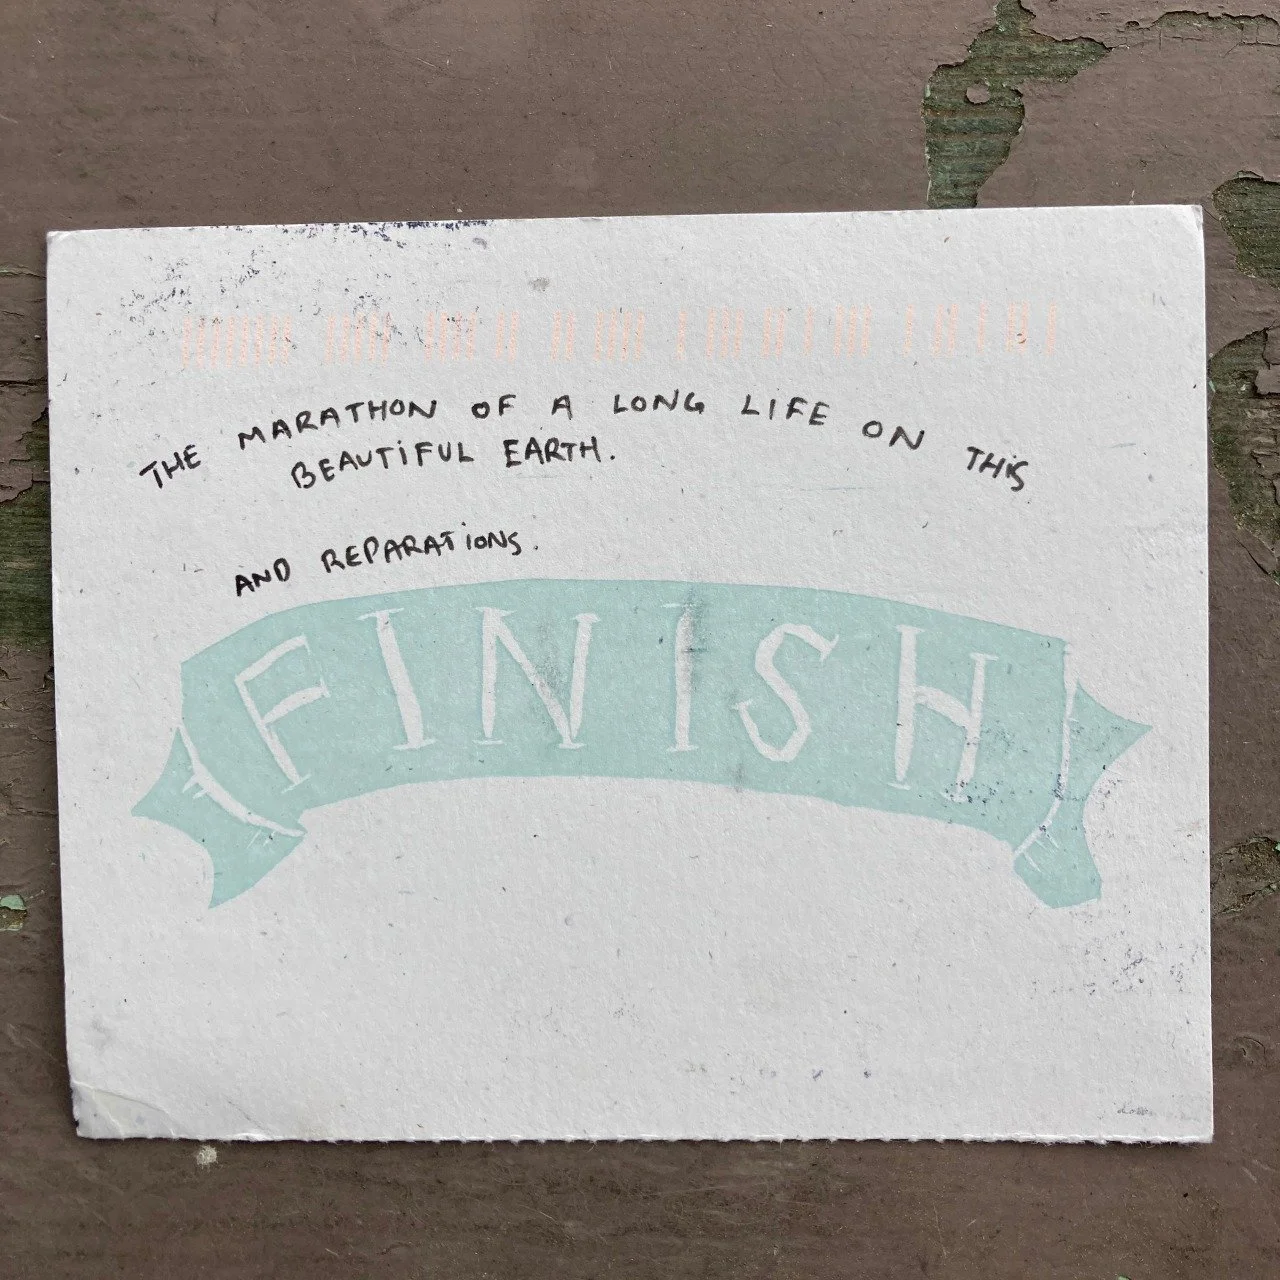 THE MARATHON OF A LONG LIFE ON THIS
BEAUTIFUL EARTH.
AND REPARATIONS.
FINISH